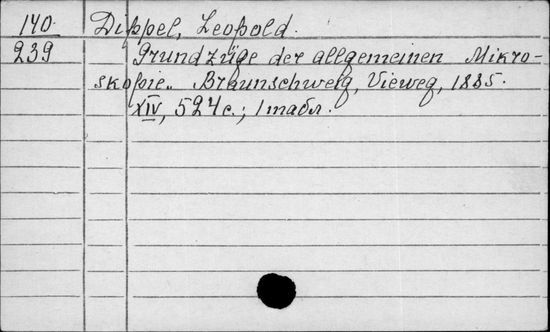 140 Dippel, Leopold.
239 Grundzüge der allgemeinen Mikro-
skopie. Braunschweig, Vieweg, 1885.
XIV, 524 с.; 1 табл.